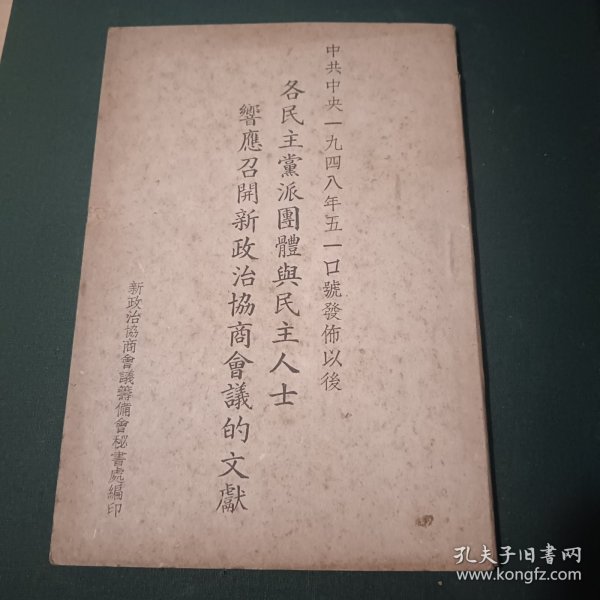 中共中央一九四八年五一口號發佈以後
各民主黨派團體與民主人士
響應召開新政治協商會議的文獻
新政治協商會議籌備會秘書處編印
孔夫子旧书网
www.kongfz.com